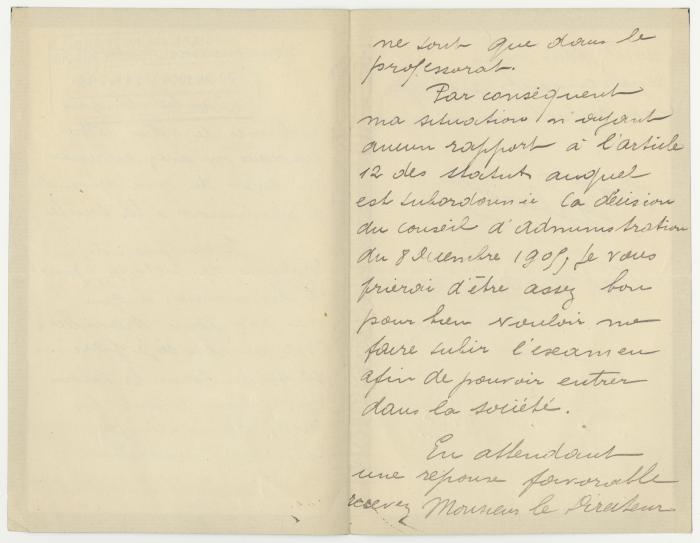 ne sont que dans le
professorat.
Par conséquent
ma situation n'ayant
aucun rapport à l'article
12 des statuts auquel
est subordonnée la décision
du conseil d'administration
du 8 Décembre 1905, je vous
prierai d'être assez bon
pour bien vouloir me
faire subir l'examen
afin de pouvoir entrer
dans la société.
En attendant
une réponse favorable
recevez Monsieur le Directeur